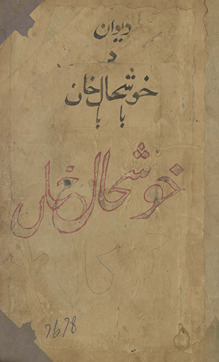 دیوان
د
خوشحال خان
بابا
خوشحال خان
7678